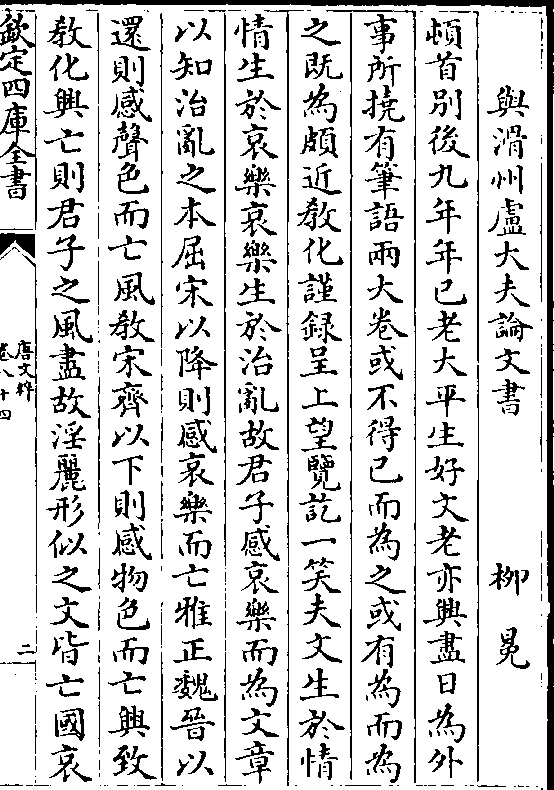 與滑州盧大夫論文書 柳冕
頓首別後九年年已老大平生好文老亦興盡日為外
事所撓有筆語兩大卷或不得已而為之或有為而為
之既為頗近教化謹録呈上望覽訖一笑夫文生於情
情生於哀樂哀樂生於治亂故君子感哀樂而為文章
以知治亂之本屈宋以降則感哀樂而亡雅正魏晉以
還則感聲色而亡風教宋齊以下則感物色而亡興致
教化興亡則君子之風盡故淫麗形似之文皆亡國哀
欽定四庫全書
唐文粹
卷八十四
二